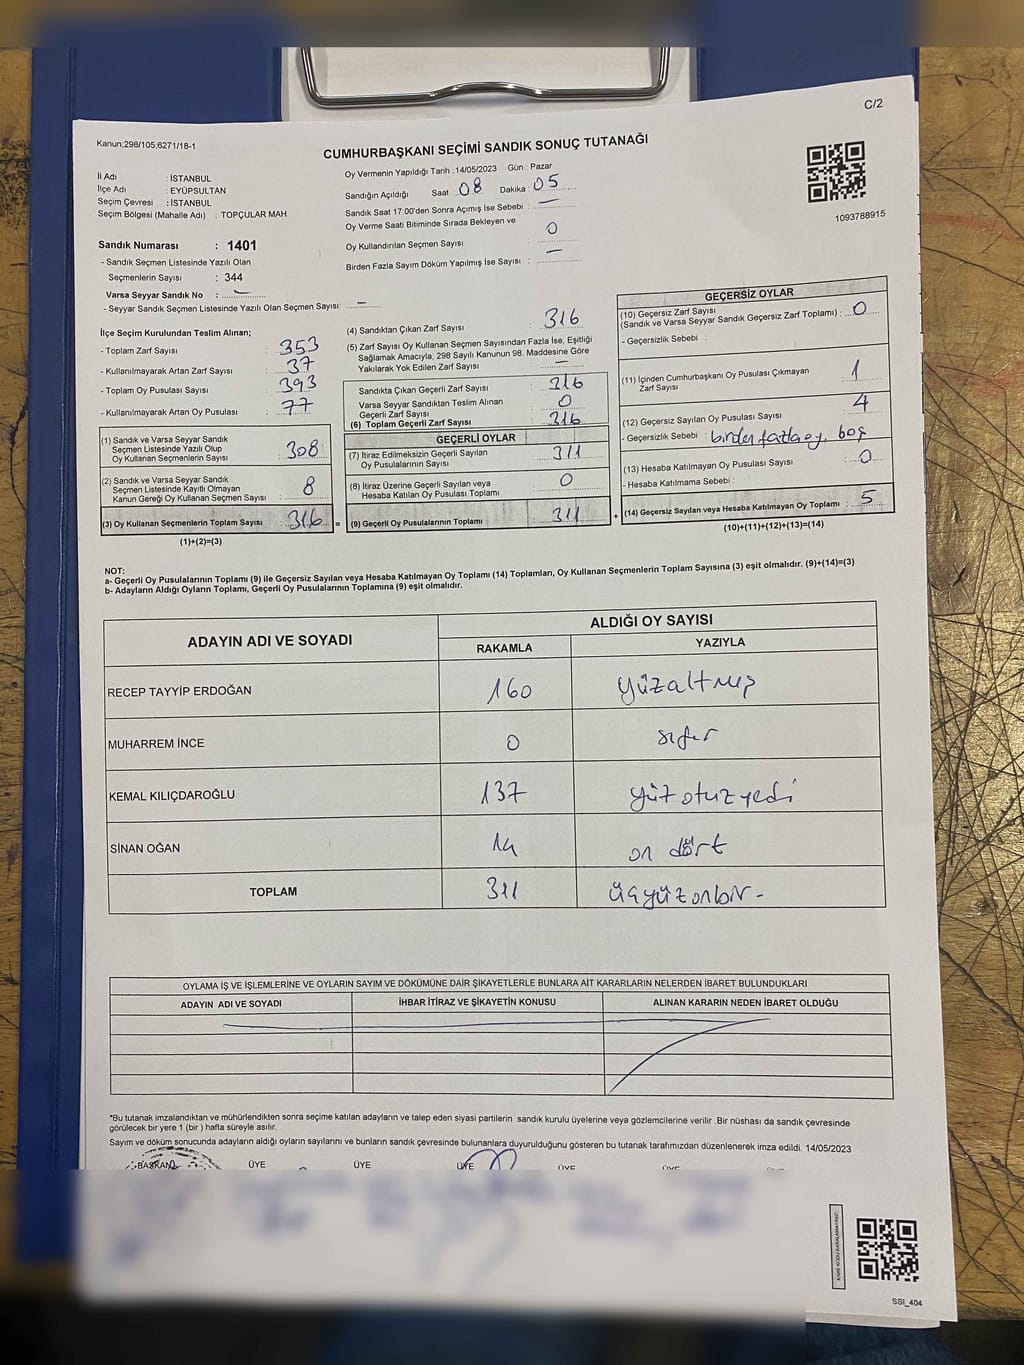 C/2
Kanun;298/105,6271/18-1
CUMHURBAŞKANI SEÇİMİ SANDIK SONUÇ TUTANAĞI
1093788915
İl Adı : İSTANBUL
İlçe Adı : EYÜPSULTAN
Seçim Çevresi : İSTANBUL
Seçim Bölgesi (Mahalle Adı) : TOPÇULAR MAH.
Sandık Numarası : 1401
- Sandık Seçmen Listesinde Yazılı Olan
Seçmenlerin Sayısı : 344
Varsa Seyyar Sandık No : —
- Seyyar Sandık Seçmen Listesinde Yazılı Olan Seçmen Sayısı: —
Oy Vermenin Yapıldığı Tarih :14/05/2023 Gün : Pazar
Sandığın Açıldığı Saat : 08 Dakika : 05
Sandık Saat 17:00'den Sonra Açımış İse Sebebi : —
Oy Verme Saati Bitiminde Sırada Bekleyen ve
Oy Kullandırılan Seçmen Sayısı : 0
Birden Fazla Sayım Döküm Yapılmış İse Sayısı : —
İlçe Seçim Kurulundan Teslim Alınan;
- Toplam Zarf Sayısı : 353
- Kullanılmayarak Artan Zarf Sayısı : 37
- Toplam Oy Pusulası Sayısı : 393
- Kullanılmayarak Artan Oy Pusulası : 77
(1) Sandık ve Varsa Seyyar Sandık
Seçmen Listesinde Yazılı Olup
Oy Kullanan Seçmenlerin Sayısı : 308
(2) Sandık ve Varsa Seyyar Sandık
Seçmen Listesinde Kayıtlı Olmayan
Kanun Gereği Oy Kullanan Seçmen Sayısı : 8
(3) Oy Kullanan Seçmenlerin Toplam Sayısı : 316 =
(1)+(2)=(3)
(4) Sandıktan Çıkan Zarf Sayısı : 316
(5) Zarf Sayısı Oy Kullanan Seçmen Sayısından Fazla İse, Eşitliği
Sağlamak Amacıyla; 298 Sayılı Kanunun 98. Maddesine Göre
Yakılarak Yok Edilen Zarf Sayısı : —
Sandıkta Çıkan Geçerli Zarf Sayısı : 316
Varsa Seyyar Sandıktan Teslim Alınan
Geçerli Zarf Sayısı : 0
(6) Toplam Geçerli Zarf Sayısı : 316
GEÇERLİ OYLAR
(7) İtiraz Edilmeksizin Geçerli Sayılan
Oy Pusulalarının Sayısı : 311
(8) İtiraz Üzerine Geçerli Sayılan veya
Hesaba Katılan Oy Pusulası Toplamı : 0
(9) Geçerli Oy Pusulalarının Toplamı : 311
GEÇERSİZ OYLAR
(10) Geçersiz Zarf Sayısı
(Sandık ve Varsa Seyyar Sandık Geçersiz Zarf Toplamı) : 0
- Geçersizlik Sebebi :
(11) İçinden Cumhurbaşkanı Oy Pusulası Çıkmayan
Zarf Sayısı : 1
(12) Geçersiz Sayılan Oy Pusulası Sayısı : 4
- Geçersizlik Sebebi : birden fazla oy, boş
(13) Hesaba Katılmayan Oy Pusulası Sayısı : 0
- Hesaba Katılmama Sebebi :
(14) Geçersiz Sayılan veya Hesaba Katılmayan Oy Toplamı : 5
(10)+(11)+(12)+(13)=(14)
NOT:
a- Geçerli Oy Pusulalarının Toplamı (9) ile Geçersiz Sayılan veya Hesaba Katılmayan Oy Toplamı (14) Toplamları, Oy Kullanan Seçmenlerin Toplam Sayısına (3) eşit olmalıdır. (9)+(14)=(3)
b- Adayların Aldığı Oyların Toplamı, Geçerli Oy Pusulalarının Toplamına (9) eşit olmalıdır.
ADAYIN ADI VE SOYADI ALDIĞI OY SAYISI
RAKAMLA YAZIYLA
RECEP TAYYİP ERDOĞAN 160 yüzaltmış
MUHARREM İNCE 0 sıfır
KEMAL KILIÇDAROĞLU 137 yüz otuz yedi
SİNAN OĞAN 14 on dört
TOPLAM 311 üçyüz onbir -
OYLAMA İŞ VE İŞLEMLERİNE VE OYLARIN SAYIM VE DÖKÜMÜNE DAİR ŞİKAYETLERLE BUNLARA AİT KARARLARIN NELERDEN İBARET BULUNDUKLARI
ADAYIN ADI VE SOYADI İHBAR İTİRAZ VE ŞİKAYETİN KONUSU ALINAN KARARIN NEDEN İBARET OLDUĞU
*Bu tutanak imzalandıktan ve mühürlendikten sonra seçime katılan adayların ve talep eden siyasi partilerin sandık kurulu üyelerine veya gözlemcilerine verilir .Bir nüshası da sandık çevresinde
görülecek bir yere 1 (bir ) hafta süreyle asılır.
Sayım ve döküm sonucunda adayların aldığı oyların sayılarını ve bunların sandık çevresinde bulunanlara duyurulduğunu gösteren bu tutanak tarafımızdan düzenlenerek imza edildi. 14/05/2023
BAŞKAN ÜYE ÜYE ÜYE ÜYE ÜYE
SSI_404